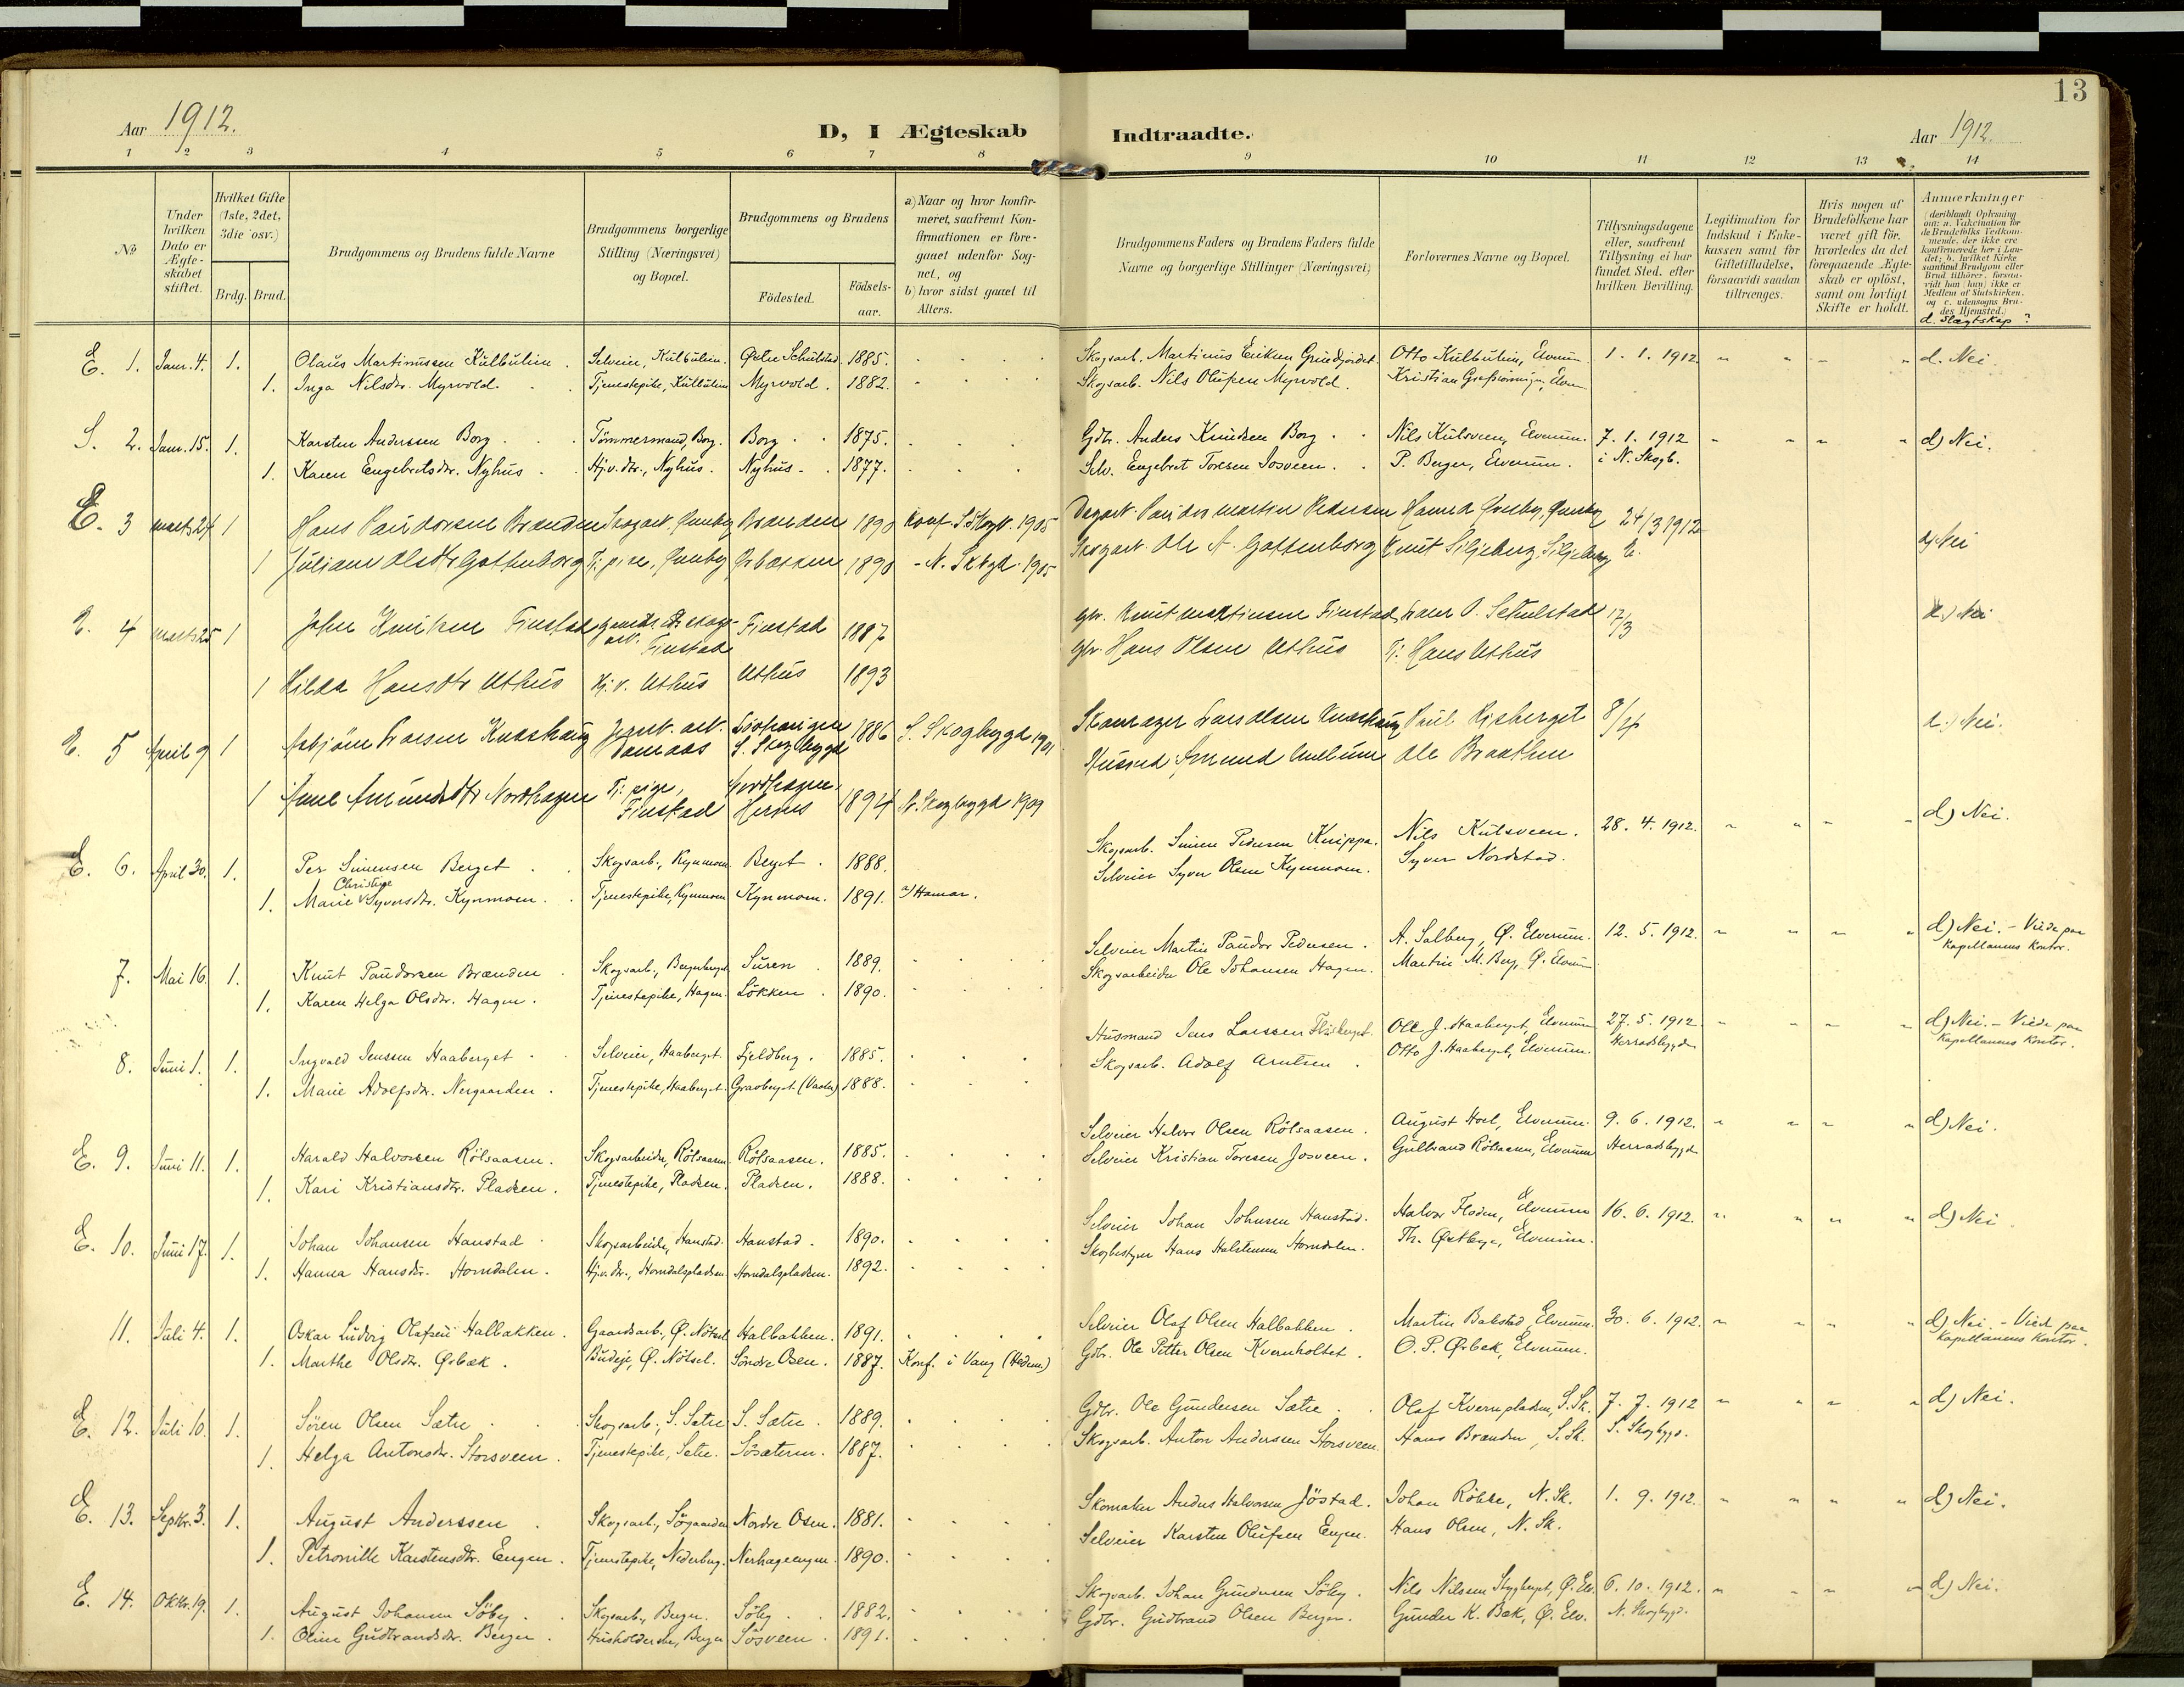 13
Aar 1912.
D, I Ægteskab Indtraadte.
Aar 1912.
1 2 3 4 5 6 7 8 9 10 11 12 13 14
№
Under hvilken Dato er Ægteskabet stiftet.
Hvilket Gifte (1ste, 2det, 3die osv.)
Brdg. Brud.
Brudgommens og Brudens fulde Navne
Brudgommens borgerlige Stilling (Næringsvei) og Bopæl.
Brudgommens og Brudens
Födested.
Födselsaar.
a) Naar og hvor konfirmeret, saafremt Konfirmationen er foregaaet udenfor Sognet, og
b) hvor sidst gaaet til Alters.
Brudgommens Faders og Brudens Faders fulde Navne og borgerlige Stillinger (Næringsvei)
Forlovernes Navne og Bopæl.
Tillysningsdagene eller, saafremt Tillysning ei har fundet Sted, efter hvilken Bevilling.
Legitimation for Indskud i Enkekassen samt for Giftetilladelse, forsaavidt saadan tiltrænges.
Hvis nogen af Brudefolkene har været gift för, hvorledes da det foregaaende Ægteskab er oplöst, samt om lovligt Skifte er holdt.
Anmærkninger
(deriblandt Oplysning om: a. Vakcination for de Brudefolks Vedkommende, der ikke ere konfirmerede her i Landet; b. hvilket Kirkesamfund Brudgom eller Brud tilhörer, forsaavidt han (hun) ikke er Medlem af Statskirken, og c. udensogns Brudes Hjemsted.)
d. Slægtskap?
E. 1. Jan. 4. 1. Olaus Martinussen Kulbulien. Selveier, Kulbulien. Østre Schulstad 1885. Skogsarb. Martinus Eriksen Grindfjordet. Otto Kulbulien, Elverum 1. 1. 1912. " " " " d. Nei.
1. Inga Nilsdtr. Myrvold. Tjenestepike, Kulbulien Myrvold. 1882. Skogsarb. Nils Olufsen Myrvold. Kristian
S. 2. Jan. 15. 1. Karsten Anderssen Borg. Tömmermand, Borg. Borg. 1875. Gdbr. Anders Knudsen Borg. Nils Kulsveen, Elverum. 7. 1. 1912 " " " " d) Nei.
1. Karen Engebretsdtr. Nyhus. Hj.v. dtr., Nyhus. Nyhus. 1877. Selv. Engebret Toresen Josveen. P. Berger, Elverum. i N. Skogb.
E. 3 marts 24 1 Hans Paudorsen Brænden Skogarb. Brænden 1890 Konf. S. Skogb. 1905 Pauder Martin Pedersen 24/3 1912 d) Nei
1 Juliane Olsdtr Gottenborg Tj. pike, 1890 - N. Skbgd. 1905 Skogarb. Ole A. Gottenborg Knut Siljeberg, Siljeberg E.
E. 4 marts 25 1 John Knutsen Finstad skogarb. Finstad Finstad 1887 Gbr. Knut Martinsen Finstad Hans O. Schulstad 17/3 d.) Nei
1 Hilda Hansdtr Uthus Hj. v. Uthus Uthus 1893 Gbr. Hans Olsen Uthus Tj. Hans Uthus
E. 5 April 9 1 Asbjörn Larsen Knashaug S. Skogbygd 1886 S. Skogbygd 1901 Lars Olsen Knashaug Paul Risberget 8/4 d.) Nei.
1 Anne Amundsdtr Nordhagen Tj. pige, Finstad Nordhagen, Hernes 1894 N. Skogbygd 1909 Husmd Amund Ole Braathen
E. 6. April 30. 1. Per Simensen Berget. Skogsarb., Kynmoen. Berget. 1888. Skogsarb. Simen Pedersen Knippa. Nils Kulsveen. 28. 4. 1912. " " " " d) Nei.
1. Marie Christine Syversdtr. Kynmoen. Tjenestepike, Kynmoen Kynmoen. 1891. a) Hamar. Selveier Syver Olsen Kynmoen. Syver Nordstad.
7. Mai 16. 1. Knut Paudorsen Brænden. Skogsarb., Bergeberget Suren. 1889. Selveier Martin Paudor Pedersen. A. Salberg, Ø. Elverum. 12. 5. 1912. " " " " d) Nei. - Viede paa Kapellanens Kontor.
1. Karen Helga Olsdtr. Hagen. Tjenestepike, Hagen. Lökken. 1890. Skogsarbeider Ole Johansen Hagen. Martin M. Berg, Ø. Elverum
8. Juni 1. 1. Ingvald Jenssen Haaberget. Selveier, Haaberget. Fjeldberg. 1885. Husmand Jens Larssen Flisberget. Ole J. Haaberget, Elverum 27. 5. 1912. " " " " d) Nei. - Viede paa Kapellanens Kontor.
1. Marie Adolfsdtr. Nergaarden. Tjenestepike, Haaberget. Gravberget (Vaaler) 1888. Skogsarb. Adolf Arntsen. Otto J. Haaberget, Elverum. Herradsbygden
E. 9. Juni 11. 1. Harald Halvorsen Rölsaasen. Skogsarbeider, Rölsaasen. Rölsaasen. 1885. Selveier Halvor Olsen Rölsaasen. August Hoel, Elverum. 9. 6. 1912. " " " " d) Nei.
1. Kari Kristiansdtr. Pladsen. Tjenestepike, Pladsen. Pladsen. 1888. Selveier Kristian Toresen Josveen. Gulbrand Rölsaasen, Elverum Herradsbygd
E. 10. Juni 17. 1. Johan Johansen Hanstad. Skogsarbeider, Hanstad. Hanstad. 1890. Selveier Johan Johnsen Hanstad. Halvor Floden, Elverum 16. 6. 1912. " " " " d) Nei
1. Hanna Hansdtr. Horndalen. Hj.v. dtr., Horndalspladsen. Horndalspladsen. 1892. Skogbestyrer Hans Halstensen Horndalen. Th. Østbye, Elverum.
11. Juli 4. 1. Oskar Ludvig Olafsen Halbakken. Gaardsarb., Ø. Nötsel Halbakken. 1891. Selveier Olaf Olsen Halbakken. Martin Bakstad, Elverum. 30. 6. 1912. " " " " d) Nei. - Viede paa Kapellanens Kontor.
1. Marthe Olsdtr. Ørbæk. Budeje, Ø. Nötsel. Söndre Osen. 1887. Konf. i Vang (Hedem.) Gdbr. Ole Petter Olsen Kvernholtet. O. P. Ørbek, Elverum.
E. 12. Juli 10. 1. Sören Olsen Sætre. Skogsarb., S. Sætre S. Sætre. 1889. Gdbr. Ole Gundersen Sætre. Olaf Kvernpladsen, S. Sk. 7. 7. 1912 " " " " d) Nei.
1. Helga Antonsdtr. Storsveen. Tjenestepike, Sætre. Sösæteren. 1887. Skogsarb. Anton Anderssen Storsveen. Hans Brænden, S. Sk. S. Skogbygd.
E. 13. Septbr. 3. 1. August Anderssen. Skogsarb., Sögaarden Nordre Osen. 1881. Skomaker Anders Halvorsen Jöstad. Johan Röbke, N. Sk. 1. 9. 1912. " " " " d) Nei.
1. Petronille Karstensdtr. Engen. Tjenestepike, Nederberg. Nerhageengen. 1890. Selveier Karsten Olufsen Engen. Hans Olsen, N. Sk.
E. 14. Oktbr. 19. 1. August Johansen Söby. Skogsarb., Berger. Söby. 1882. Skogsarb. Johan Gundersen Söby. Nils Nilssen Stygberget, Ø. Elv. 6. 10. 1912. " " " " d) Nei.
1. Oline Gudbrandsdtr. Berger. Husholderske, Berger Sösveen. 1891. Gdbr. Gudbrand Olsen Berger. Gunder K. Bæk, Ø. Elv. N. Skogbygd.